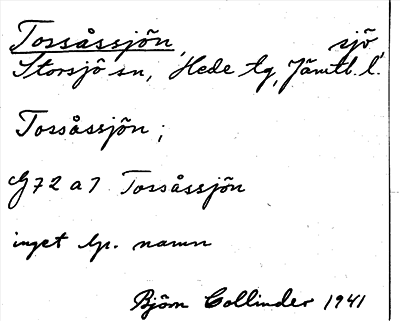 Torsåssjön, sjö,
Storsjö sn, Hede tg, Jämtl. l.
Torsåssjön;
G72 a 7 Torsåssjön
inget lp. namn
Björn Collinder 1941